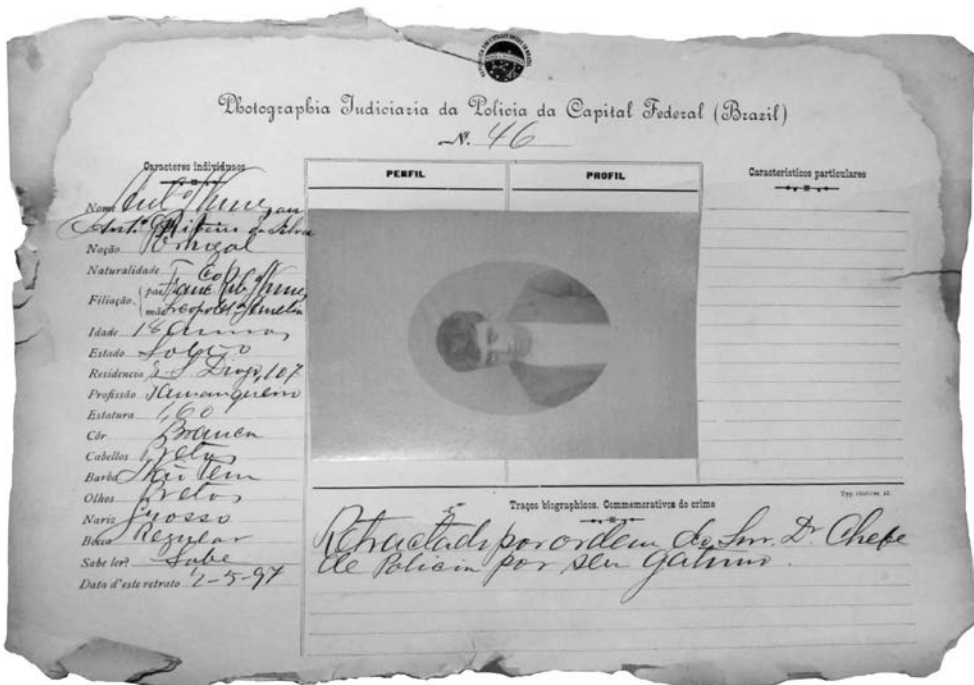 Photographia Judiciaria da Policia da Capital Federal (Brazil)
Nº. 46
Caracteres individuaes
Nome
Antº Ribeiro da Silva
Nação Portugal
Naturalidade
Filiação. pae
mãe Leopoldª
Idade 18 annos
Estado Solteiro
Residencia R. S. Diogo, 107
Profissão Tamanqueiro
Estatura 1,60
Côr Branca
Cabellos Pretos
Barba Não tem
Olhos Pretos
Nariz Grosso
Bocca Regular
Sabe ler? Sabe
Data d'este retrato 2-5-97
PERFIL
PROFIL
Caracteristicos particulares
Traços biographicos. Commemorativos do crime
Retractado por ordem do Snr. Dr. Chefe
de Policia por ser gatuno.